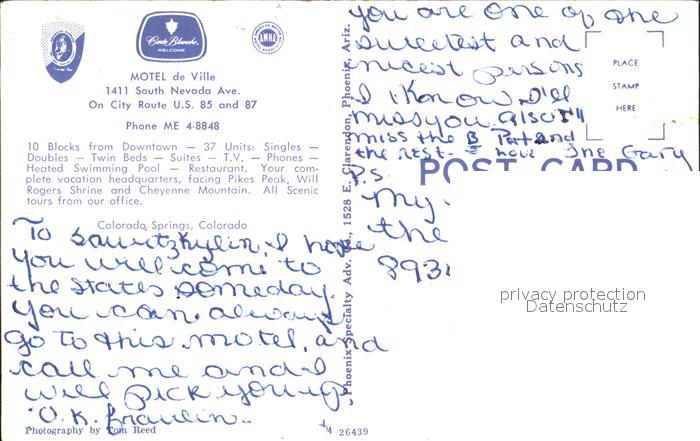 Carte Blanche
WELCOME
AMHA
MOTEL de Ville
1411 South Nevada Ave.
On City Route U.S. 85 and 87
Phone ME 4-8848
10 Blocks from Downtown — 37 Units: Singles —
Doubles — Twin Beds — Suites — T.V. — Phones —
Heated Swimming Pool — Restaurant. Your com-
plete vacation headquarters, facing Pikes Peak, Will
Rogers Shrine and Cheyenne Mountain. All Scenic
tours from our office.
Colorado Springs, Colorado
To I hope
you will come to
the states someday.
you can always
go to this motel, and
call me and I
will pick you up
O.K. fraulin.
Photography by Tom Reed
Phoenix Specialty Adv. Co., 1528 E. Clarendon, Phoenix, Ariz.
you are one of the
sweetest and
nicest persons
I know I'll
miss you. also I'll
miss the B Pat and
the rest. Gary
P.S.
My
the
893
PLACE
STAMP
HERE
POST CARD
26439
privacy protection
Datenschutz